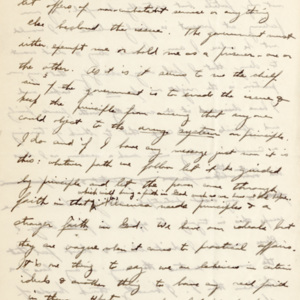 let offers of noncombatant service or anything
else becloud the issue. The government must
either exempt me or hold me as a prisoner - one or
the other. As it is it seems to me the chief
aim of the government is to evade the issue &
keep the principle from arising that any one
could object to the army system on principle.
I do and if I have any message just now it is
this: whatever path we follow let it be guided
by principle and let the one true through
faith in that. America needs principles &
stronger faith in God. We have our ideals but
they are vague when it comes to practical affairs.
It's one thing to say we are believers in certain
ideals & another thing to have any real faith
in them.